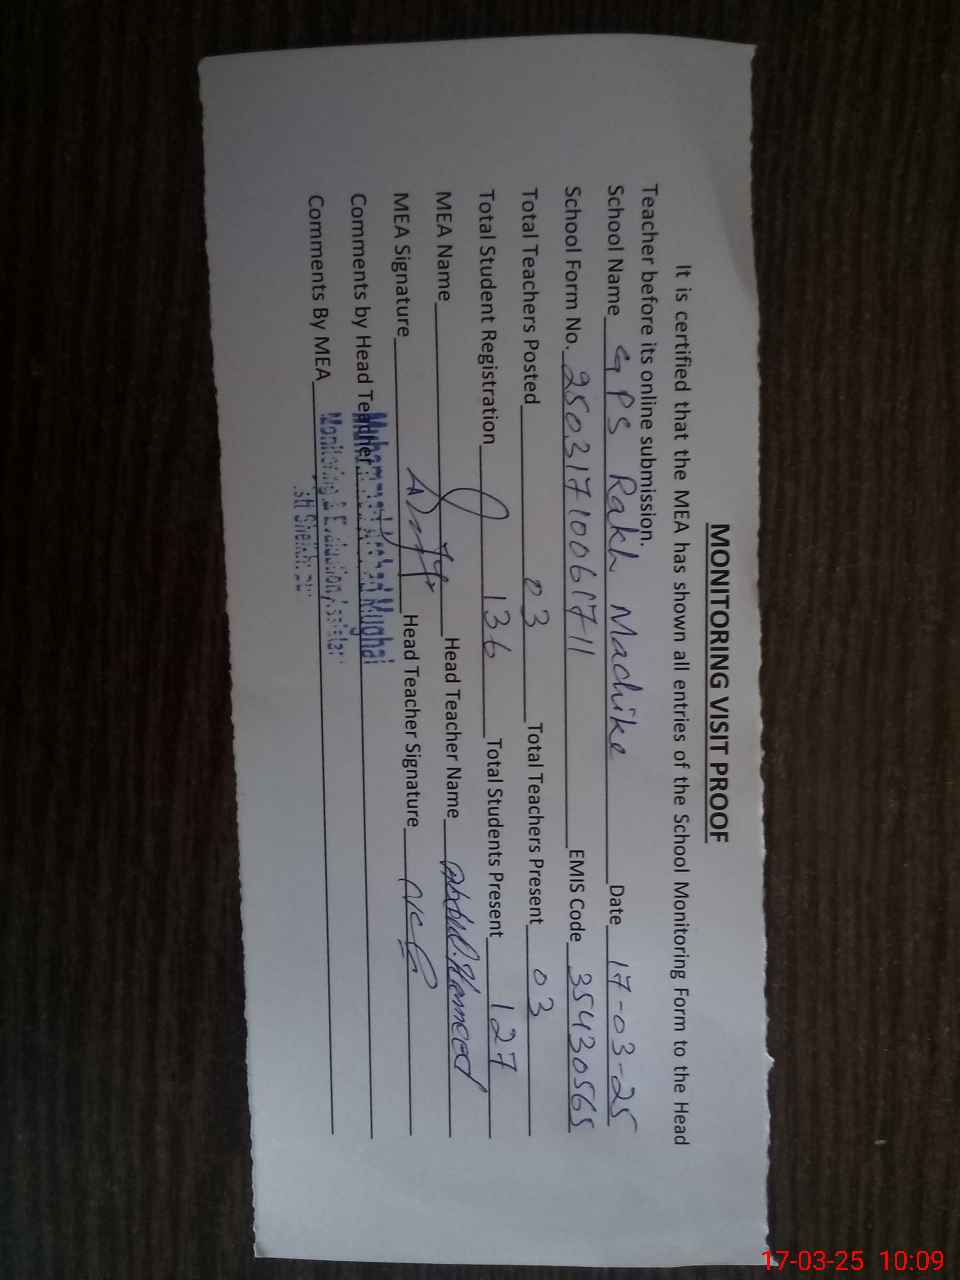 MONITORING VISIT PROOF
It is certified that the MEA has shown all entries of the School Monitoring Form to the Head
Teacher before its online submission.
School Name GPS Rakh Machike Date 17-03-25
School Form No. EMIS Code 35430565
Total Teachers Posted 03 Total Teachers Present 03
Total Student Registration 136 Total Students Present 127
MEA Name Head Teacher Name Abdul Hameed
MEA Signature Head Teacher Signature
Comments by Head Teacher
Muhammad Mughal
Comments By MEA
Monitoring & Evaluation
17-03-25 10:09